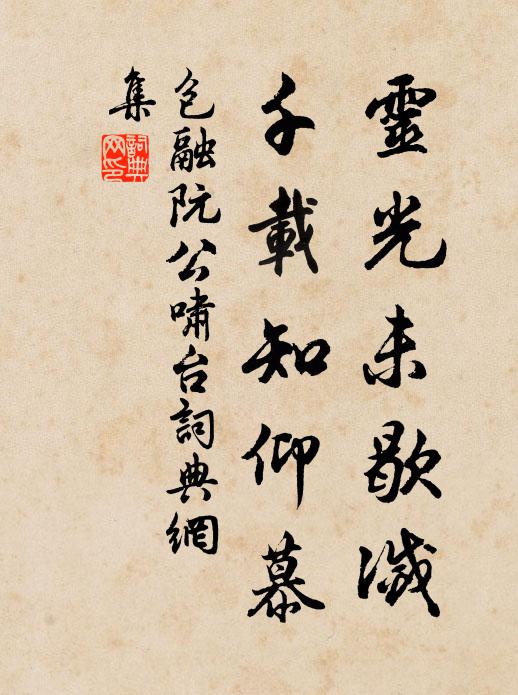 靈光未歇滅
千載知仰慕
包融阮公嘯台詞典網
集
詞典
网印